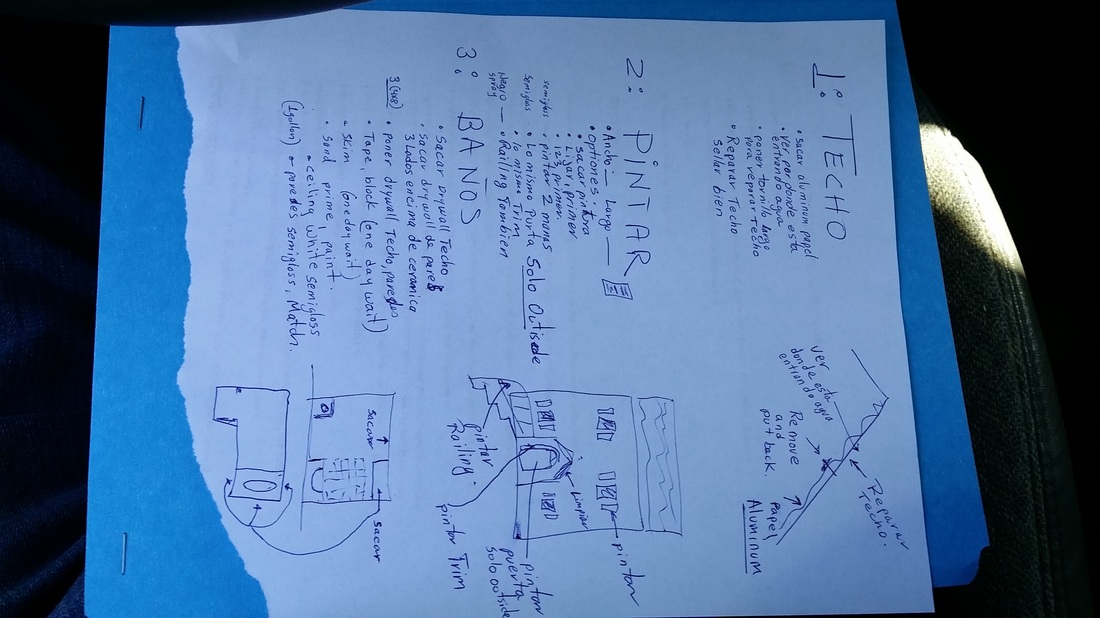 1: TECHO
• sacar aluminum papel
• ver por donde esta
entrando agua
• poner tornillo largo
para reparar Techo
• Reparar Techo
sellar bien
ver
donde esta
entrando agua
Remove
and
put back
Reparar
Techo.
Papel
Aluminum
2: PINTAR
• Ancho — Largo —
• Optiones.
• sacar pintura
• Lijar, primer
• 123, primer.
semiglos • pintar 2 manos
semiglos • Lo mismo Purta Solo Outisede
• lo mismo Trim
Negro — • Railing Tambien
spray
pintar
Railing.
Limpiar
pintar
pintar
puerta
solo outside
pintar Trim
3: BAÑOS
• Sacar Drywall Techo
• Sacar drywall de pared
3 Lados encima de ceramica
• poner drywall Techo, paredes
• Tape, block (one day wait)
• skim (one day wait)
• sand, prime, paint.
• ceiling white semigloss
(1gallon) • paredes semigloss, Match.
sacar
sacar